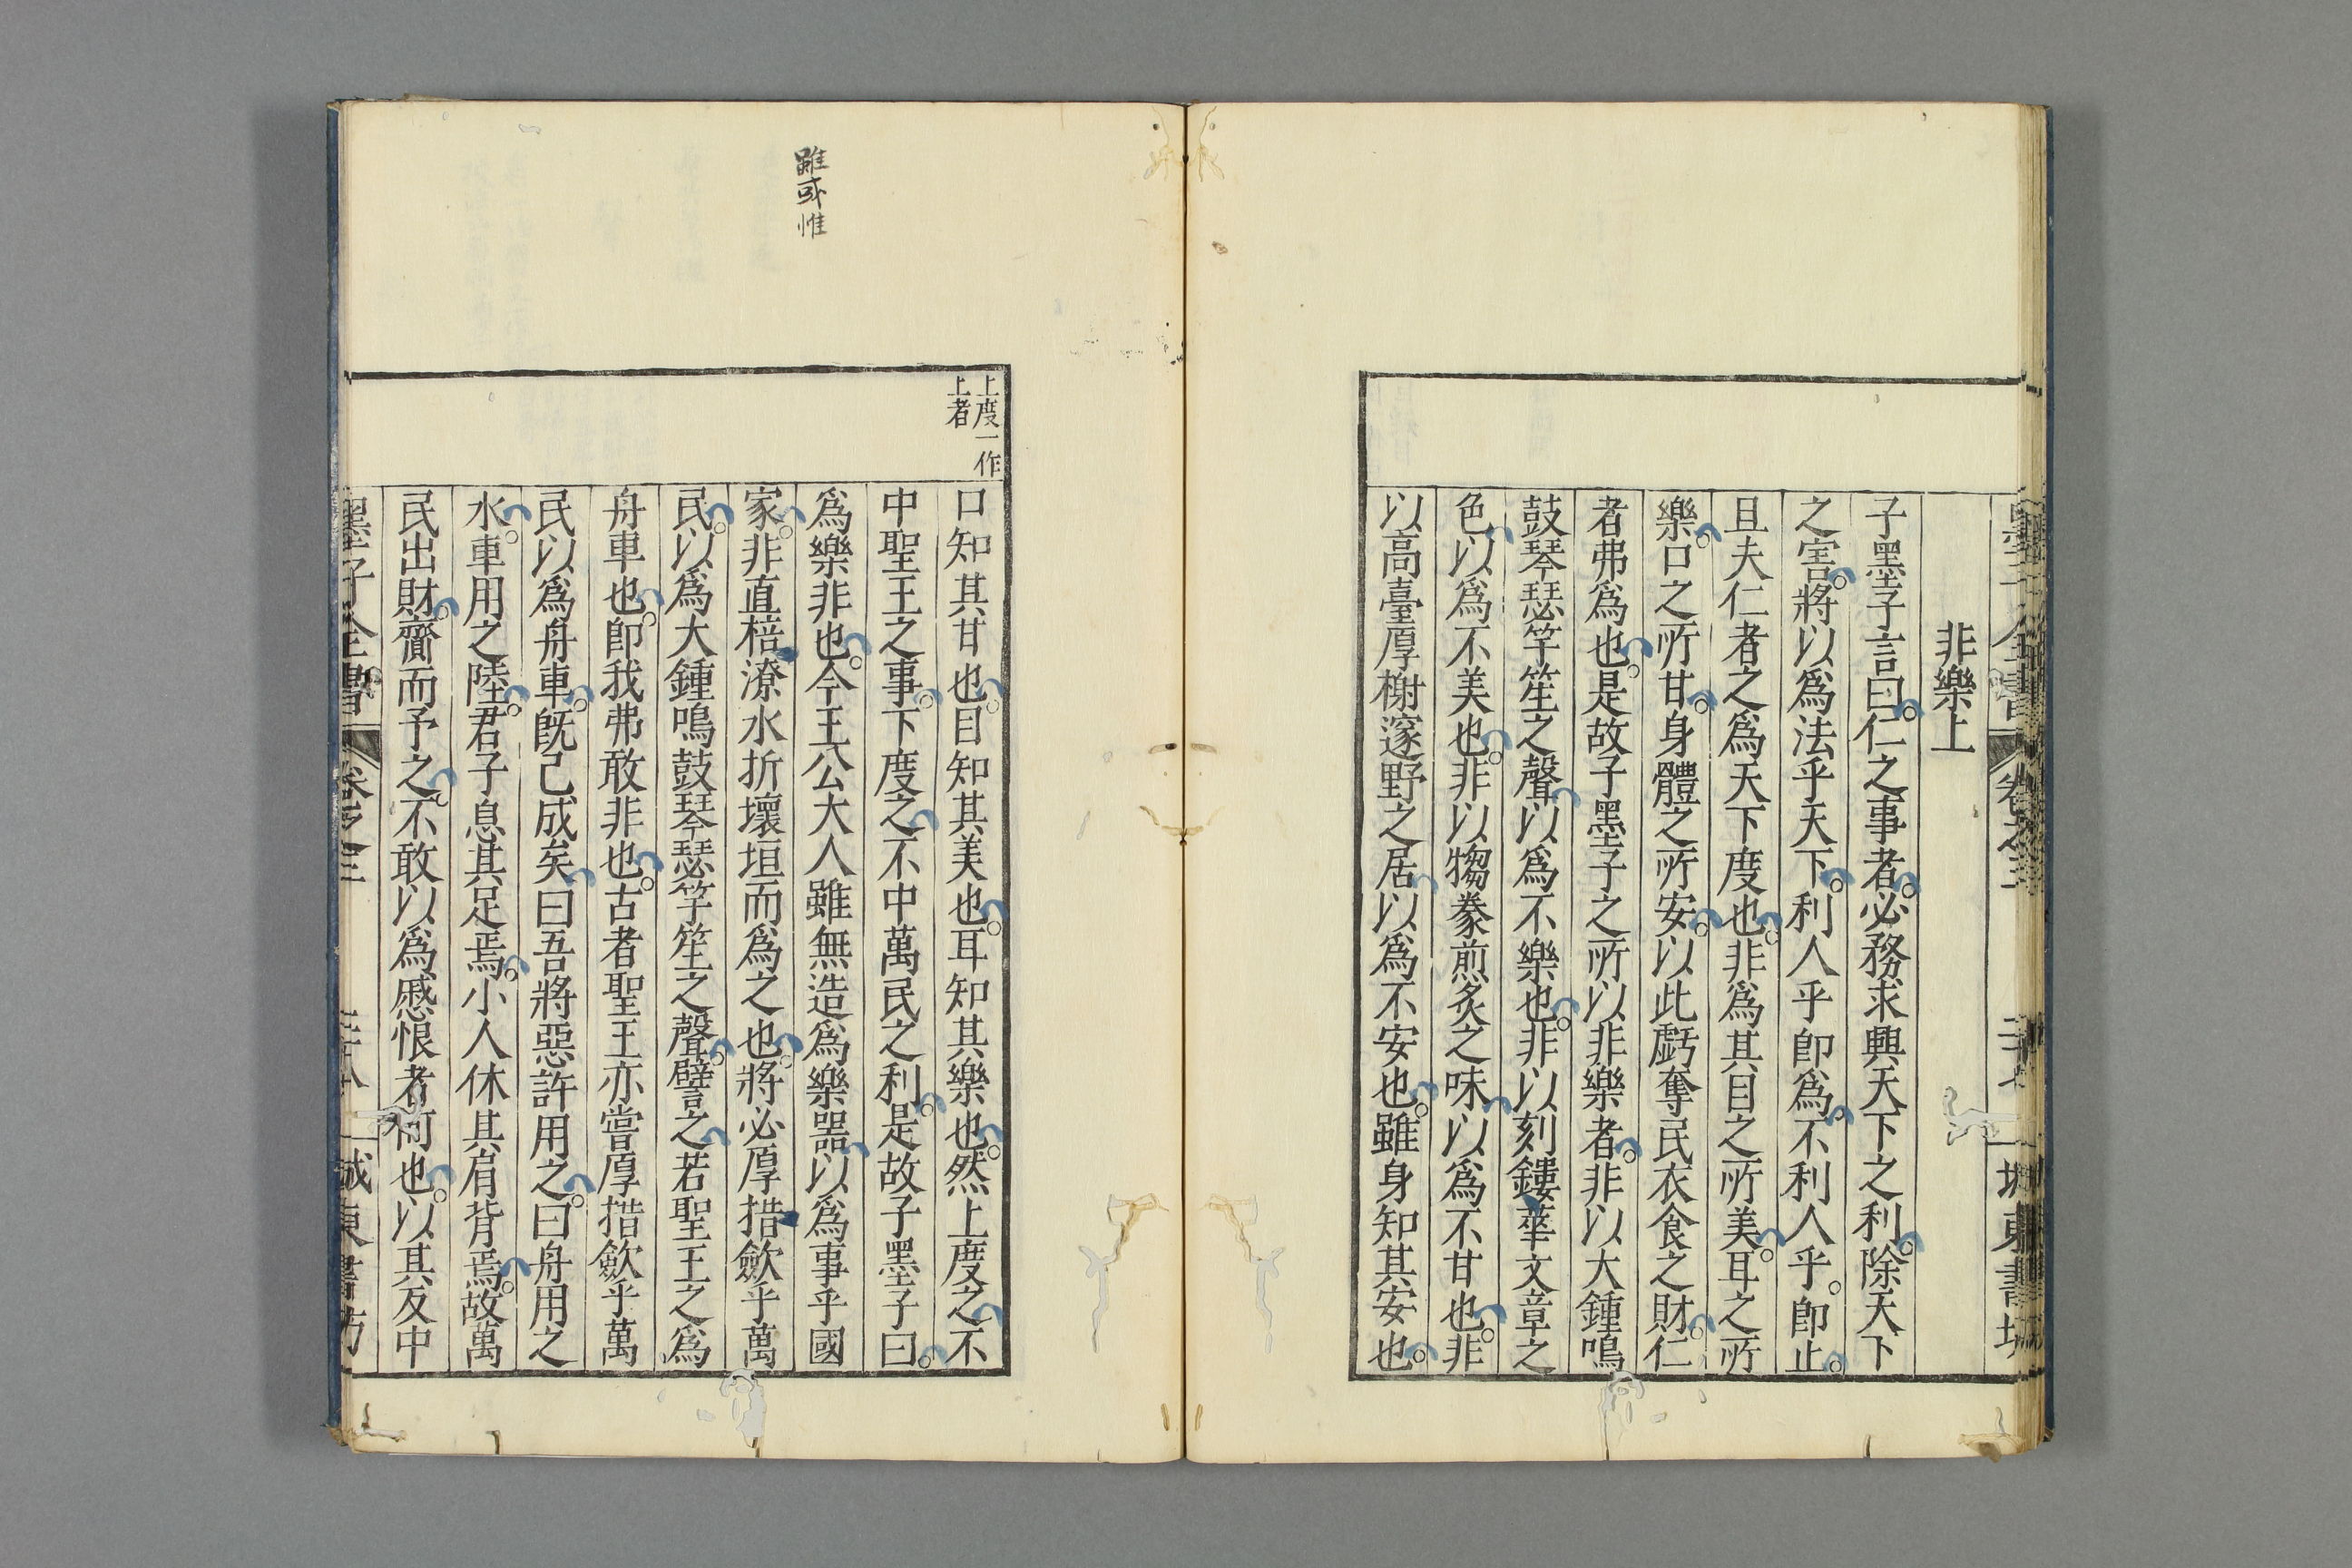 墨子全書
卷之三
三十七
城東書坊
非樂上
子墨子言曰仁之事者必務求興天下之利除天下
之害將以爲法乎天下利人乎卽爲不利人乎卽止
且夫仁者之爲天下度也非爲其目之所美耳之所
樂口之所甘身體之所安以此虧奪民衣食之財仁
者弗爲也是故子墨子之所以非樂者非以大鍾鳴
鼓琴瑟竽笙之聲以爲不樂也非以刻鏤華文章之
色以爲不美也非以犓豢煎炙之味以爲不甘也非
以高臺厚榭邃野之居以爲不安也雖身知其安也
雖或惟
上度一作
上者
口知其甘也目知其美也耳知其樂也然上度之不
中聖王之事下度之不中萬民之利是故子墨子曰
爲樂非也今王公大人雖無造爲樂器以爲事乎國
家非直掊潦水折壞垣而爲之也將必厚措歛乎萬
民以爲大鍾鳴鼓琴瑟竽笙之聲譬之若聖王之爲
舟車也卽我弗敢非也古者聖王亦嘗厚措歛乎萬
民以爲舟車旣已成矣曰吾將惡許用之曰舟用之
水車用之陸君子息其足焉小人休其肩背焉故萬
民出財齎而予之不敢以爲慼恨者何也以其反中
墨子全書
卷之三
城東書坊